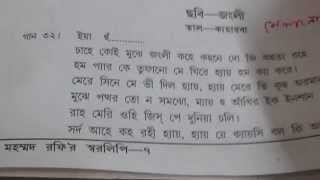 ছবি—জংলী
তাল—কাহারবা
গান ৩২। ইয়া হুঁ
চাহে কোই মুঝে জংলী কহে কহনে দো জি কহতা রহে
হম প্যার কে তুফানো মে ঘিরে হ্যায় হম ক্যা করে।
মেরে সিনে মে ভী দিল হ্যায়, হ্যায় মেরে ভি কুছ অরমান
মুঝে পত্থর তো ন সমঝো, ম্যায় হুঁ আখির ইক ইনসান
রাহ মেরি ওহি জিস্ পে দুনিয়া চলি।
সর্দ আহে কহ রহী হ্যায়, হ্যায় য়ে ক্যায়সি
মহম্মদ রফি'র স্বরলিপি—৭